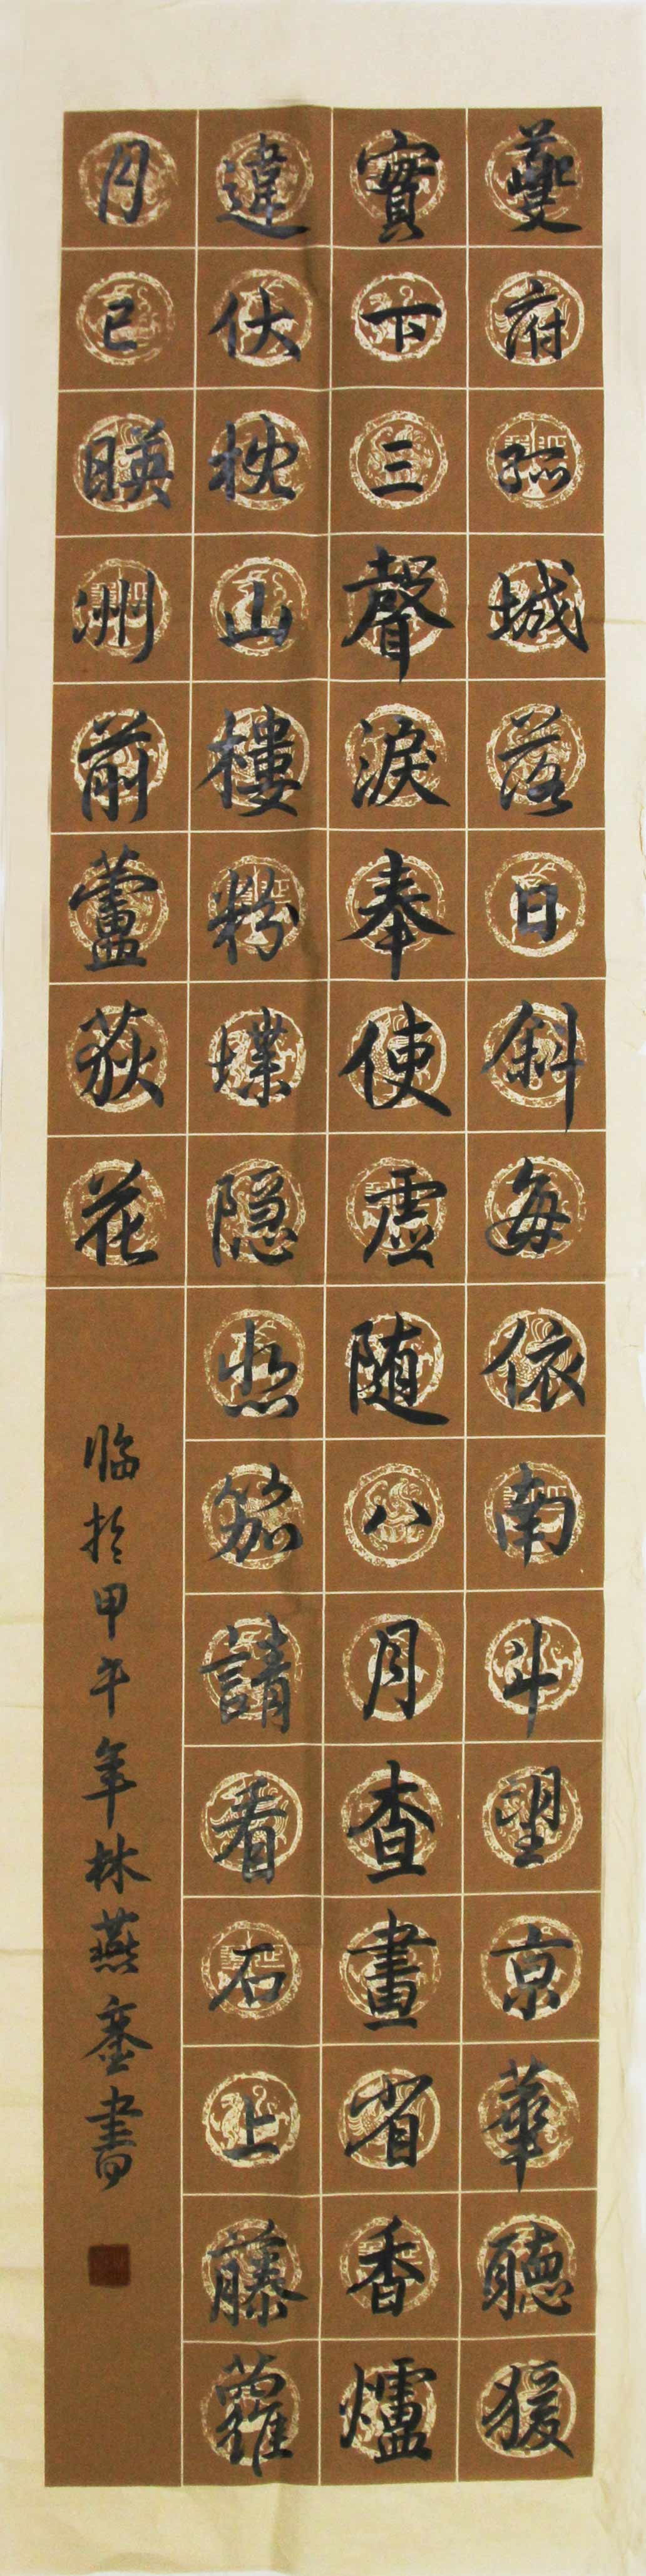 夔府孤城落日斜每依南斗望京華聽猨
實下三聲淚奉使虛随八月查畫省香爐
違伏枕山樓粉堞隱悲笳請看石上藤蘿
月已暎洲前蘆荻花
临於甲午年林燕书書